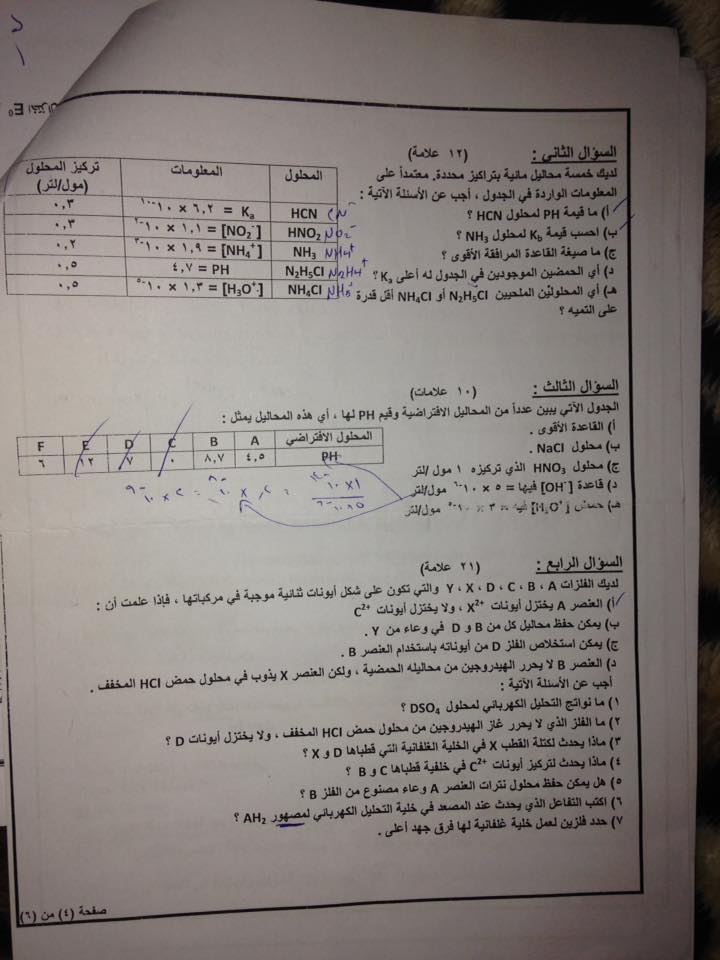 السؤال الثاني : (١٢ علامة)
لديك خمسة محاليل مائية بتراكيز محددة, معتمداً على
المعلومات الواردة في الجدول ، أجب عن الأسئلة الآتية :
أ) ما قيمة PH لمحلول HCN ؟
ب) احسب قيمة Kb لمحلول NH₃ ؟
ج) ما صيغة القاعدة المرافقة الأقوى ؟
د) أي الحمضين الموجودين في الجدول له أعلى Ka ؟
هـ) أي المحلولين الملحيين N₂H₅Cl أو NH₄Cl أقل قدرة
على التميه ؟
المحلول المعلومات تركيز المحلول (مول/لتر)
HCN CN⁻ Ka = ٦,٢ × ١٠⁻¹⁰ ٠,٣
HNO₂ NO₂⁻ [NO₂⁻] = ١,١ × ١٠⁻² ٠,٣
NH₃ NH₄⁺ [NH₄⁺] = ١,٩ × ١٠⁻³ ٠,٢
N₂H₅Cl N₂H₄⁺ PH = ٤,٧ ٠,٥
NH₄Cl [H₃O⁺] = ١,٣ × ١٠⁻⁵ ٠,٥
السؤال الثالث : (١٠ علامات)
الجدول الآتي يبين عدداً من المحاليل الافتراضية وقيم PH لها ، أي هذه المحاليل يمثل :
أ) القاعدة الأقوى .
ب) محلول NaCl .
ج) محلول HNO₃ الذي تركيزه ١ مول /لتر
د) قاعدة [OH⁻] فيها = ٥ × ١٠⁻⁶ مول/لتر
هـ) حمض [H₃O⁺] فيه = ٣ × ١٠⁻⁵ مول/لتر
المحلول الافتراضي A B C D E F
PH ٤,٥ ٨,٧ ٠ ٧ ١٢ ٦
السؤال الرابع : (٢١ علامة)
لديك الفلزات Y ، X ، D ، C ، B ، A والتي تكون على شكل أيونات ثنائية موجبة في مركباتها ، فإذا علمت أن :
أ) العنصر A يختزل أيونات X²⁺ ، ولا يختزل أيونات C²⁺
ب) يمكن حفظ محاليل كل من B و D في وعاء من Y .
ج) يمكن استخلاص الفلز D من أيوناته باستخدام العنصر B .
د) العنصر B لا يحرر الهيدروجين من محاليله الحمضية ، ولكن العنصر X يذوب في محلول حمض HCl المخفف .
أجب عن الأسئلة الآتية :
١) ما نواتج التحليل الكهربائي لمحلول DSO₄ ؟
٢) ما الفلز الذي لا يحرر غاز الهيدروجين من محلول حمض HCl المخفف ، ولا يختزل أيونات D ؟
٣) ماذا يحدث لكتلة القطب X في الخلية الغلفانية التي قطباها D و X ؟
٤) ماذا يحدث لتركيز أيونات C²⁺ في خلفية قطباها C و B ؟
٥) هل يمكن حفظ محلول نترات العنصر A وعاء مصنوع من الفلز B ؟
٦) اكتب التفاعل الذي يحدث عند المصعد في خلية التحليل الكهربائي لمصهور AH₂ ؟
٧) حدد فلزين لعمل خلية غلفانية لها فرق جهد أعلى .
صفحة (٤) من (٦)